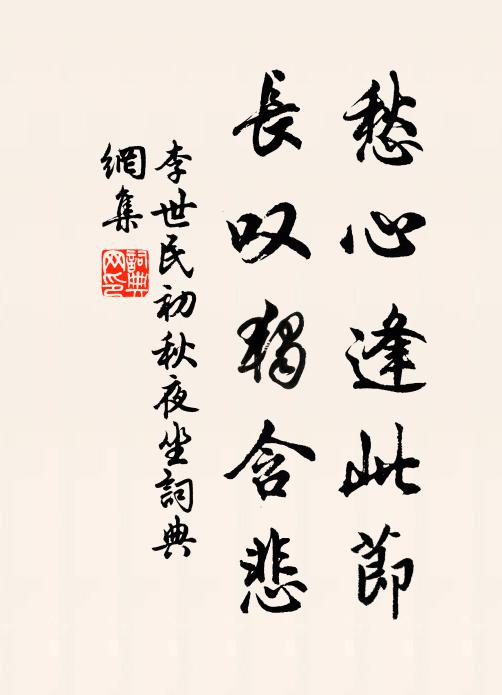 愁心逢此節
長叹獨含悲
李世民初秋夜坐詞典
網集
詞典
网印